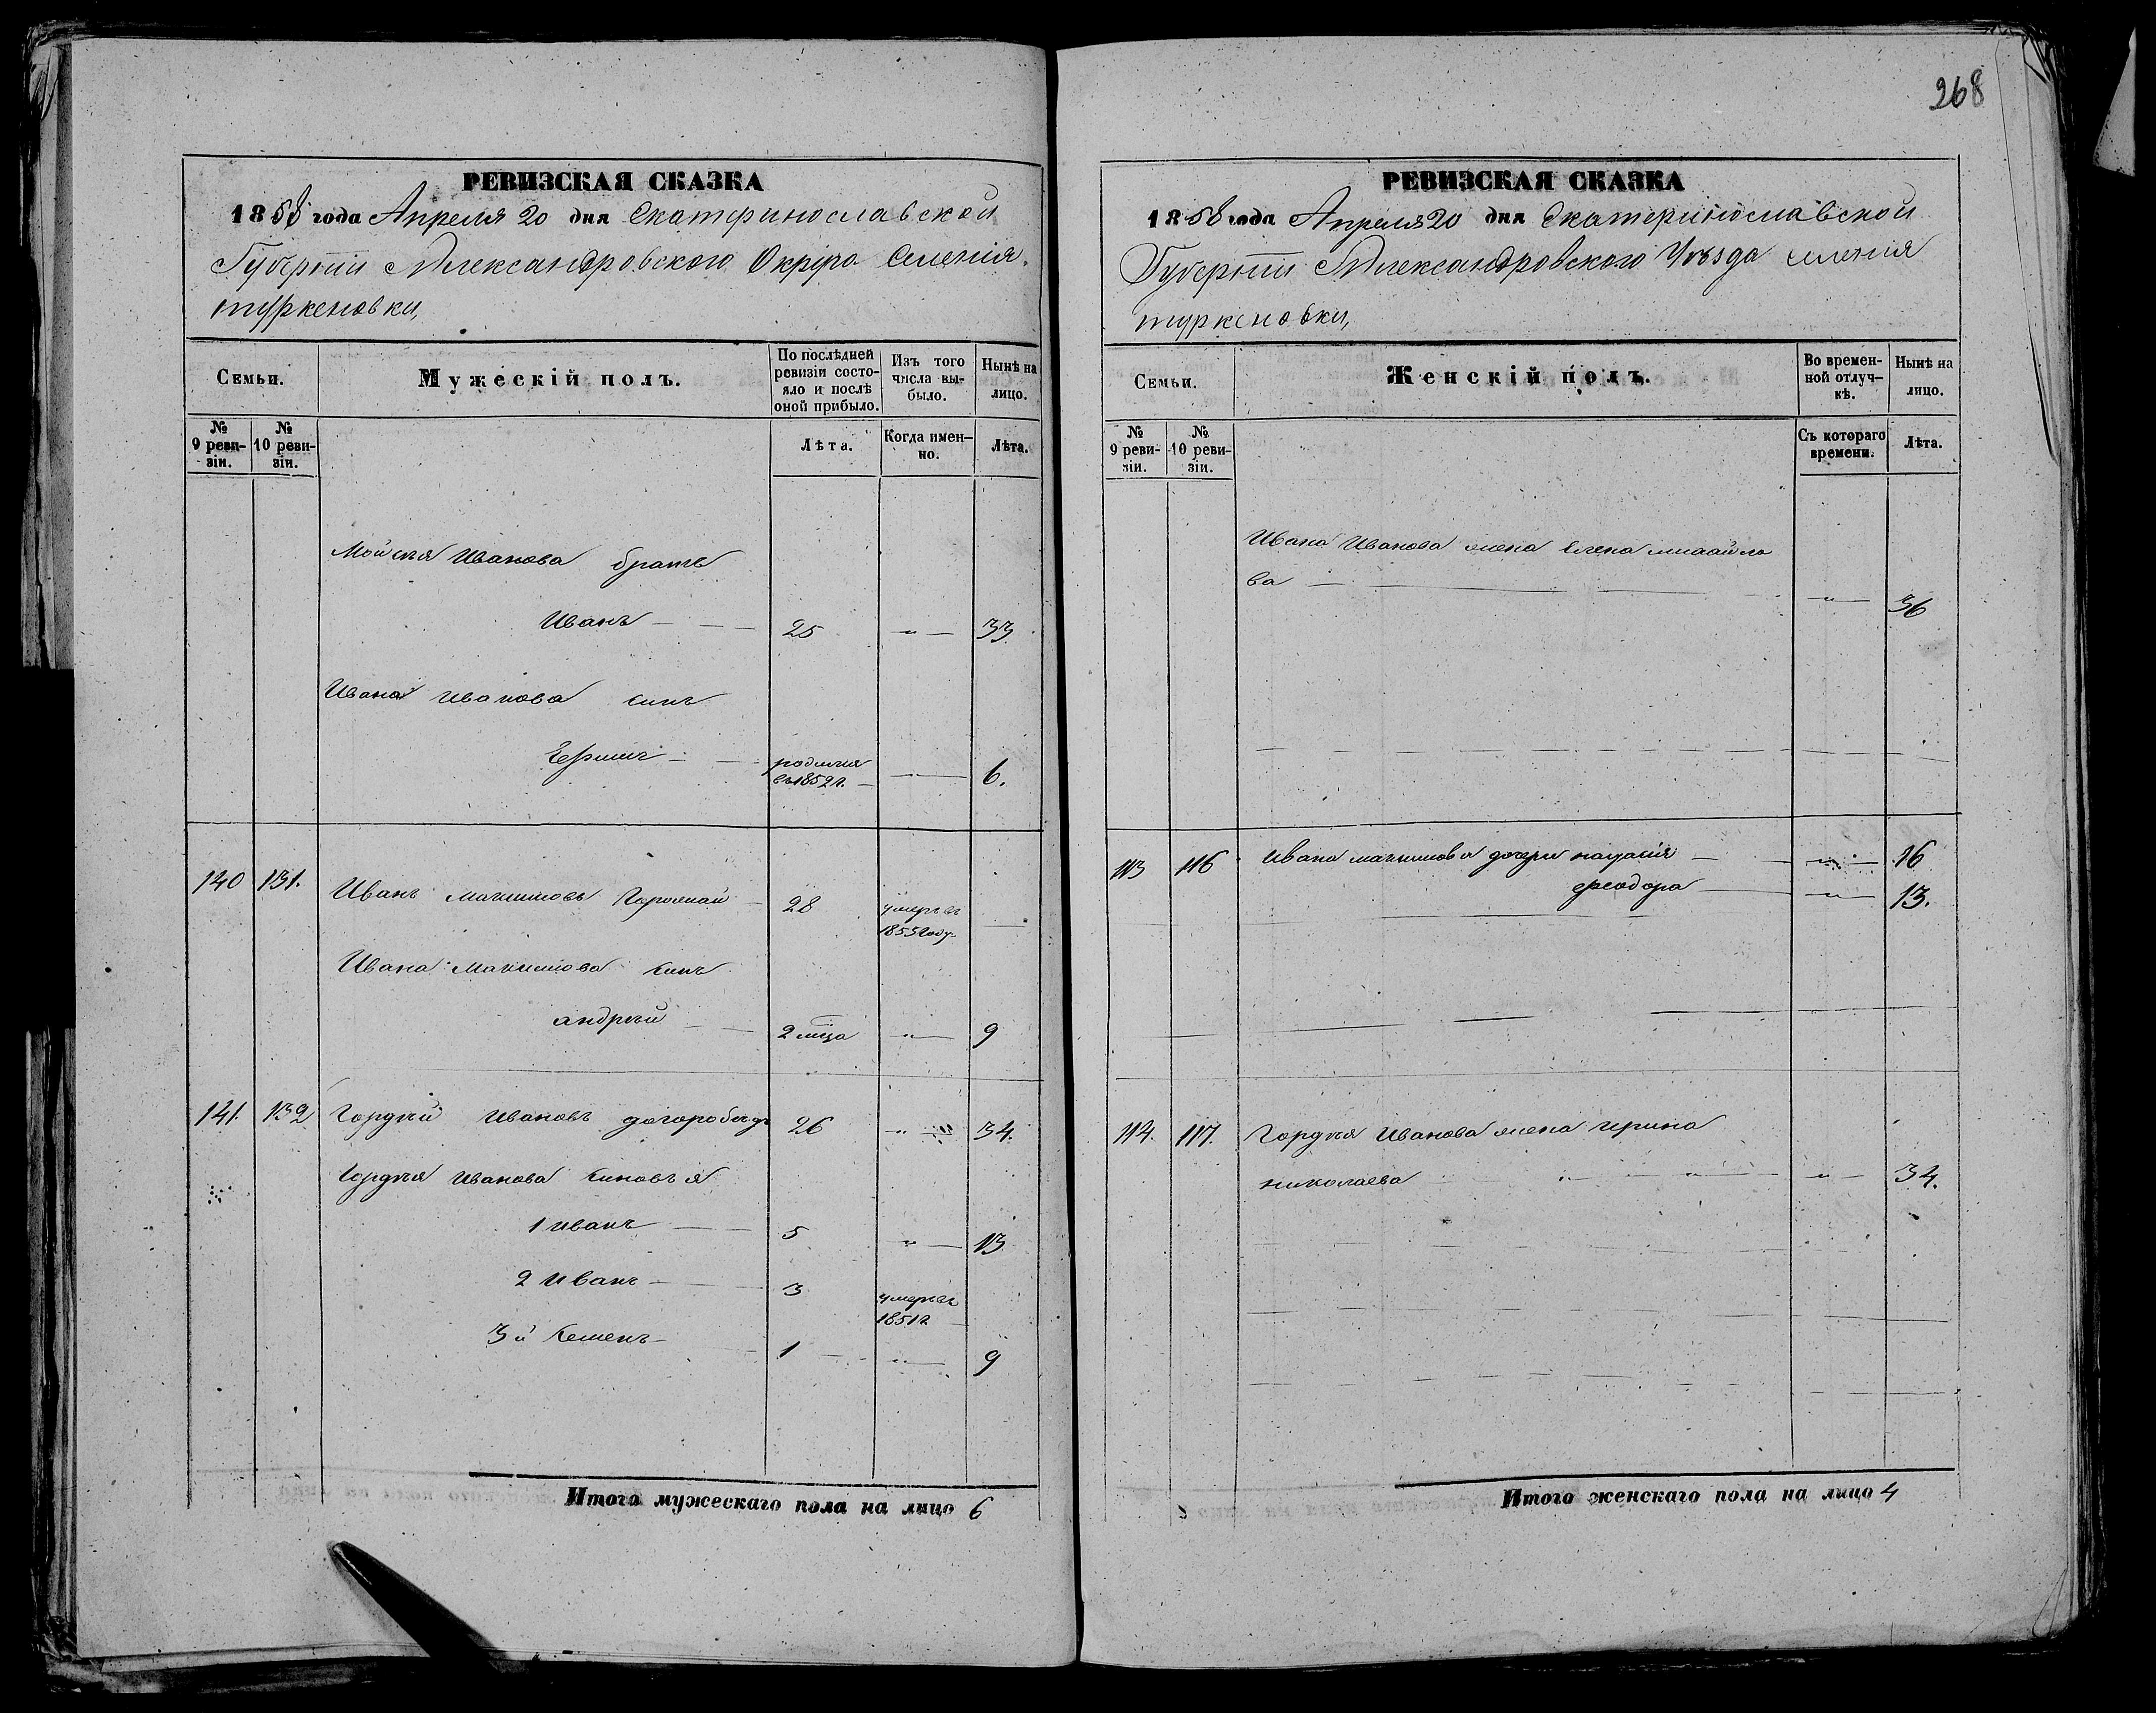 268
РЕВИЗСКАЯ СКАЗКА
1858 года Апреля 20 дня Екатеринославской
Губернiи Александровского Округа Селенiя
туркеновки,
Семьи.
Мужескiй полъ.
По послѣдней ревизiи состояло и послѣ оной прибыло.
Изъ того числа выбыло.
Нынѣ на лицо.
№ 9 ревизiи.
№ 10 ревизiи.
Лѣта.
Когда именно.
Лѣта.
Мойсѣя Иванова братъ
Иванъ 25 " 33.
Ивана Иванова синъ
родился въ 1852 г. 6.
140 131. Иванъ Максимовъ 28 умеръ въ 1855 году
Ивана Максимова синъ
андрѣй 2 мѣца " 9
141. 132 Гордѣй Ивановъ 26 " 34.
Гордѣя Иванова синовъя
1 иванъ 5 " 13
2 иванъ 3 умеръ въ 1851 г.
3й Семенъ 1 " 9
Итого мужескаго пола на лицо 6
РЕВИЗСКАЯ СКАЗКА
1858 года Апреля 20 дня Екатеринославской
Губернiи Александровского Уѣзда селенiя
туркеновки,
Семьи.
Женскiй полъ.
Во временной отлучкѣ.
Нынѣ на лицо.
№ 9 ревизiи.
№ 10 ревизiи.
Съ котораго времени.
Лѣта.
Ивана Иванова жена Елена михайло
ва " 36
113 116 Ивана максимова дочери " 16
феодора " 13.
114. 117. Гордѣя Иванова жена ирина
николаева " 34.
Итого женскаго пола на лицо 4